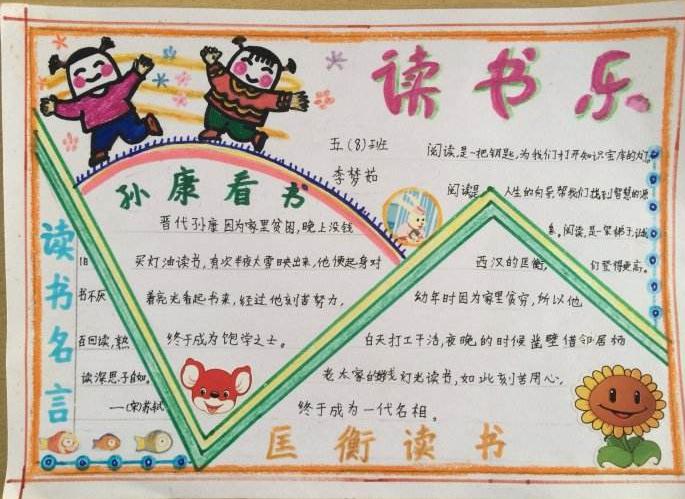 读书乐
五(8)班
李梦茹
阅读是一把钥匙,为我们打开知识宝库的门。
阅读是 人生的向导,帮我们找到智慧的源
泉。阅读是一架梯子,让
们登得更高。
孙康看书
晋代孙康因为家里贫困,晚上没钱
买灯油读书,有次半夜大雪映出来,他便起身对
着亮光看起书来,经过他刻苦努力,
终于成为饱学之士。
读书名言
旧
书不厌
百回读,熟
读深思子自知。
——(宋)苏轼
西汉的匡衡,
幼年时因为家里贫穷,所以他
白天打工干活,夜晚的时候凿壁借邻居杨
老太家的 灯光读书,如此刻苦用心,
终于成为一代名相。
匡衡读书